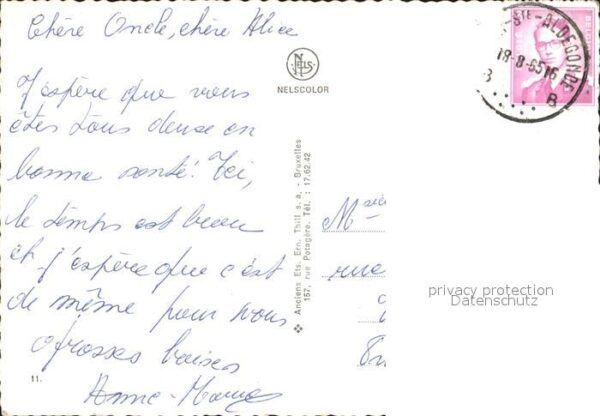 Chère Oncle, chère Alice
J'espère que vous
êtes tous deux en
bonne santé. Ici,
le temps est beau
et j'espère que c'est
de même pour vous
Grosses baises
Anne-Marie
11.
NELS
NELSCOLOR
Anciens Ets. Ern. Thill s. a. - Bruxelles
157, rue Potagère. Tél. : 17.62.42
STE-ALDEGONDE
18-8-65 16
B B
rue
privacy protection
Datenschutz